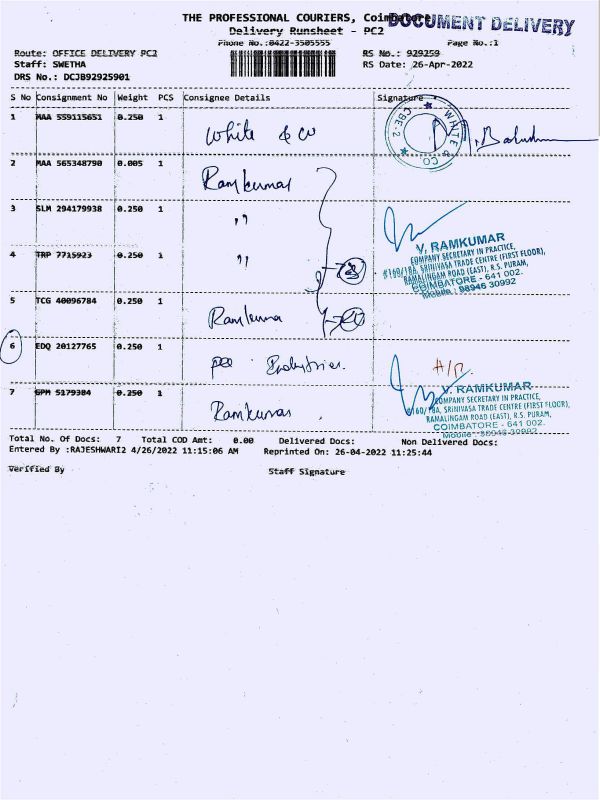 THE PROFESSIONAL COURIERS, Coimbatore
DOCUMENT DELIVERY
Delivery Runsheet - PC2
Phone No.:0422-3505555 Page No.:1
Route: OFFICE DELIVERY PC2 RS No.: 929259
Staff: SWETHA RS Date: 26-Apr-2022
DRS No.: DCJB92925901
S No Consignment No Weight PCS Consignee Details Signature
1 MAA 559115651 0.250 1 White & co
WHITE & CO. CBE-2
2 MAA 565348790 0.005 1 Ramkumar
3 SLM 294179938 0.250 1 ,,
V. RAMKUMAR
COMPANY SECRETARY IN PRACTICE,
SRINIVASA TRADE CENTRE (FIRST FLOOR),
RAMALINGAM ROAD (EAST), R.S. PURAM,
COIMBATORE - 641 002.
Mobile : 98946 30992
4 TRP 7715923 0.250 1 ,,
5 TCG 40096784 0.250 1 Ramkumar
6 EDQ 20127765 0.250 1 Industries.
7 GPM 5179384 0.250 1 Ramkumar
V. RAMKUMAR
COMPANY SECRETARY IN PRACTICE,
SRINIVASA TRADE CENTRE (FIRST FLOOR),
RAMALINGAM ROAD (EAST), R.S. PURAM,
COIMBATORE - 641 002.
Mobile : 98946 30992
Total No. Of Docs: 7 Total COD Amt: 0.00 Delivered Docs: Non Delivered Docs:
Entered By :RAJESHWARI2 4/26/2022 11:15:06 AM Reprinted On: 26-04-2022 11:25:44
Verified By Staff Signature